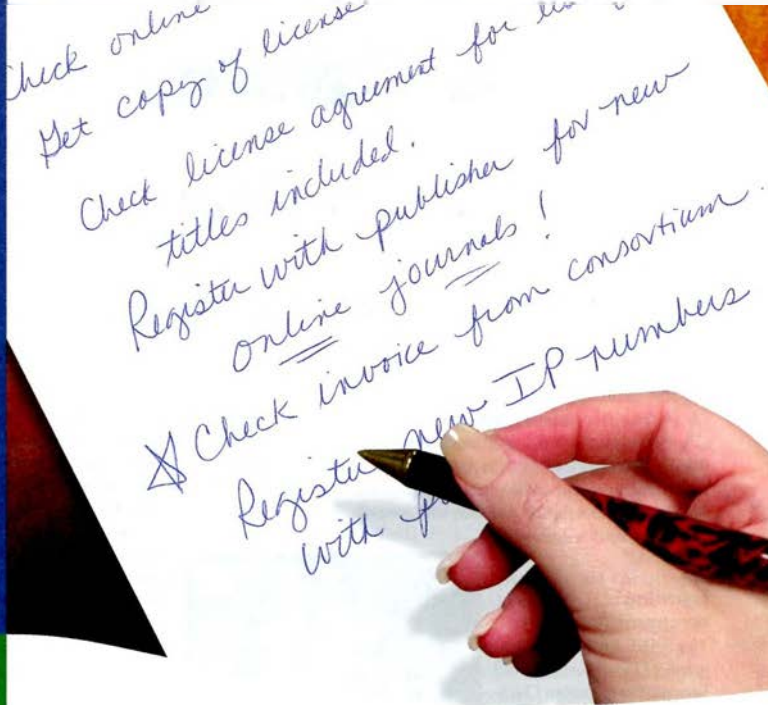 Check online
Get copy of license
Check license agreement for
titles included.
Register with publisher for new
online journals!
Check invoice from consortium.
Register new IP numbers
with